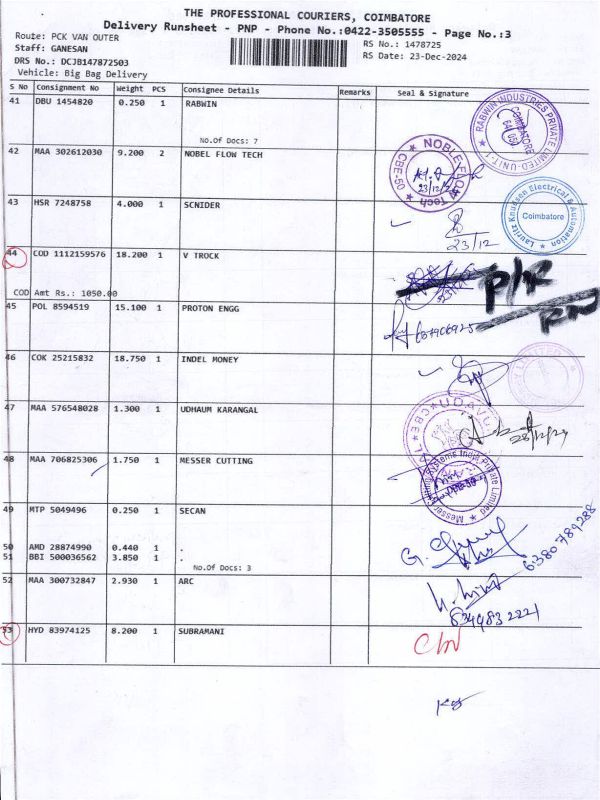 THE PROFESSIONAL COURIERS, COIMBATORE
Delivery Runsheet - PNP - Phone No.:0422-3505555 - Page No.:3
Route: PCK VAN OUTER
RS No.: 1478725
Staff: GANESAN
RS Date: 23-Dec-2024
DRS No.: DCJB147872503
Vehicle: Big Bag Delivery
S No Consignment No Weight PCS Consignee Details Remarks Seal & Signature
41 DBU 1454820 0.250 1 RABWIN
No.Of Docs: 7
RABWIN INDUSTRIES PRIVATE LIMITED-UNIT-1
COIMBATORE
42 MAA 302612030 9.200 2 NOBEL FLOW TECH
CBE-05
23/12
43 HSR 7248758 4.000 1 SCNIDER
23/12
Lauritz Knudsen Electrical & Automation
Coimbatore
44 COD 1112159576 18.200 1 V TROCK
COD Amt Rs.: 1050.00
P/R
RN
45 POL 8594519 15.100 1 PROTON ENGG
46 COK 25215832 18.750 1 INDEL MONEY
47 MAA 576548028 1.300 1 UDHAUM KARANGAL
48 MAA 706825306 1.750 1 MESSER CUTTING
Messer Cutting Systems India Private Limited
49 MTP 5049496 0.250 1 SECAN
50 AMD 28874990 0.440 1 .
51 BBI 500036562 3.850 1 .
No.Of Docs: 3
6380789288
52 MAA 300732847 2.930 1 ARC
53 HYD 83974125 8.200 1 SUBRAMANI